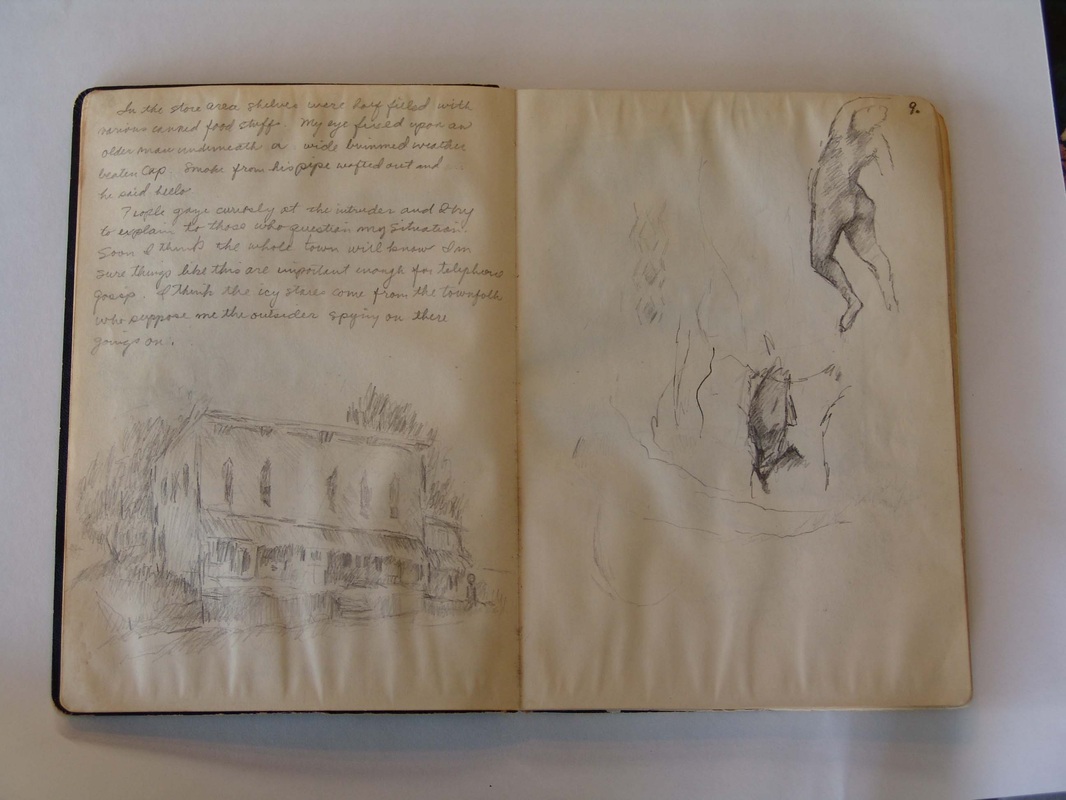 In the store area shelves were half filled with
various canned food stuffs. My eye fixed upon an
older man underneath a wide brimmed weather
beaten cap. Smoke from his pipe wafted out and
he said hello.
People gaze curiosly at the intruder and I try
to explain to those who question my situation.
Soon I think the whole town will know I'm
sure things like this are important enough for telephone
gossip. I think the icy stares come from the townfolk
who suppose me the outsider spying on there
goings on.
9.